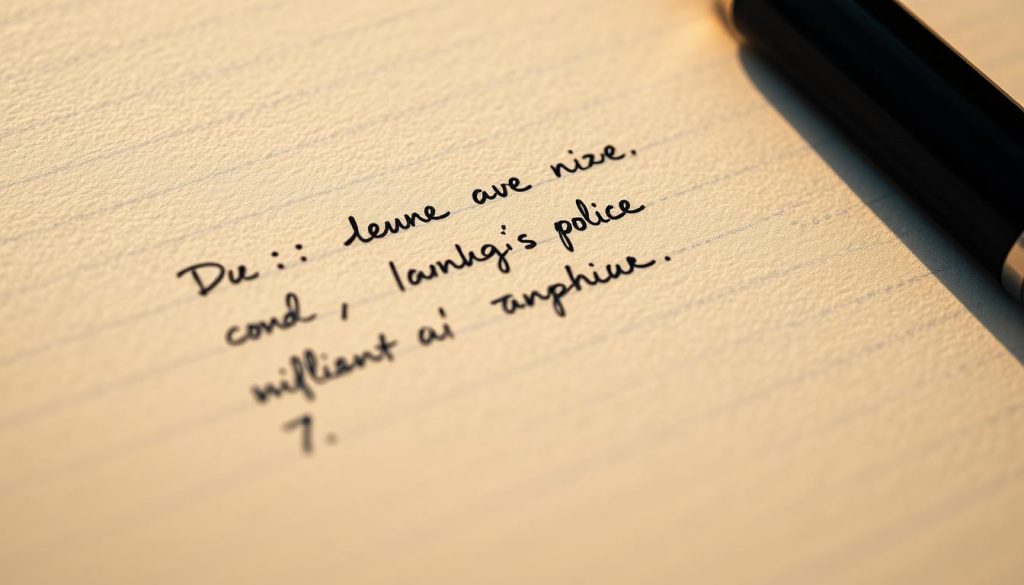 Due :: leune ave nize.
cond, lamhgi's police
mifliont ai anphiue.
7.